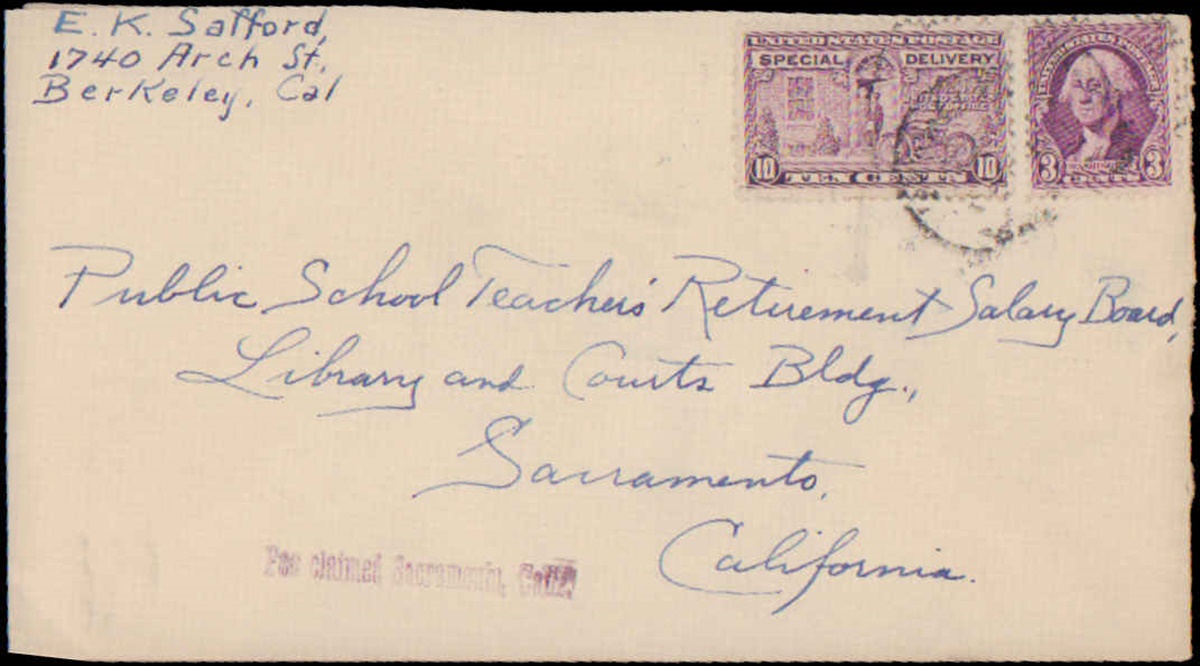 E. K. Safford,
1740 Arch St.
Berkeley, Cal
UNITED STATES POSTAGE
SPECIAL DELIVERY
10 TEN CENTS 10
UNITED STATES POSTAGE
3 CENTS 3
Public School Teachers' Retirement Salary Board,
Library and Courts Bldg.,
Sacramento,
California.
Fee claimed Sacramento, Calif.